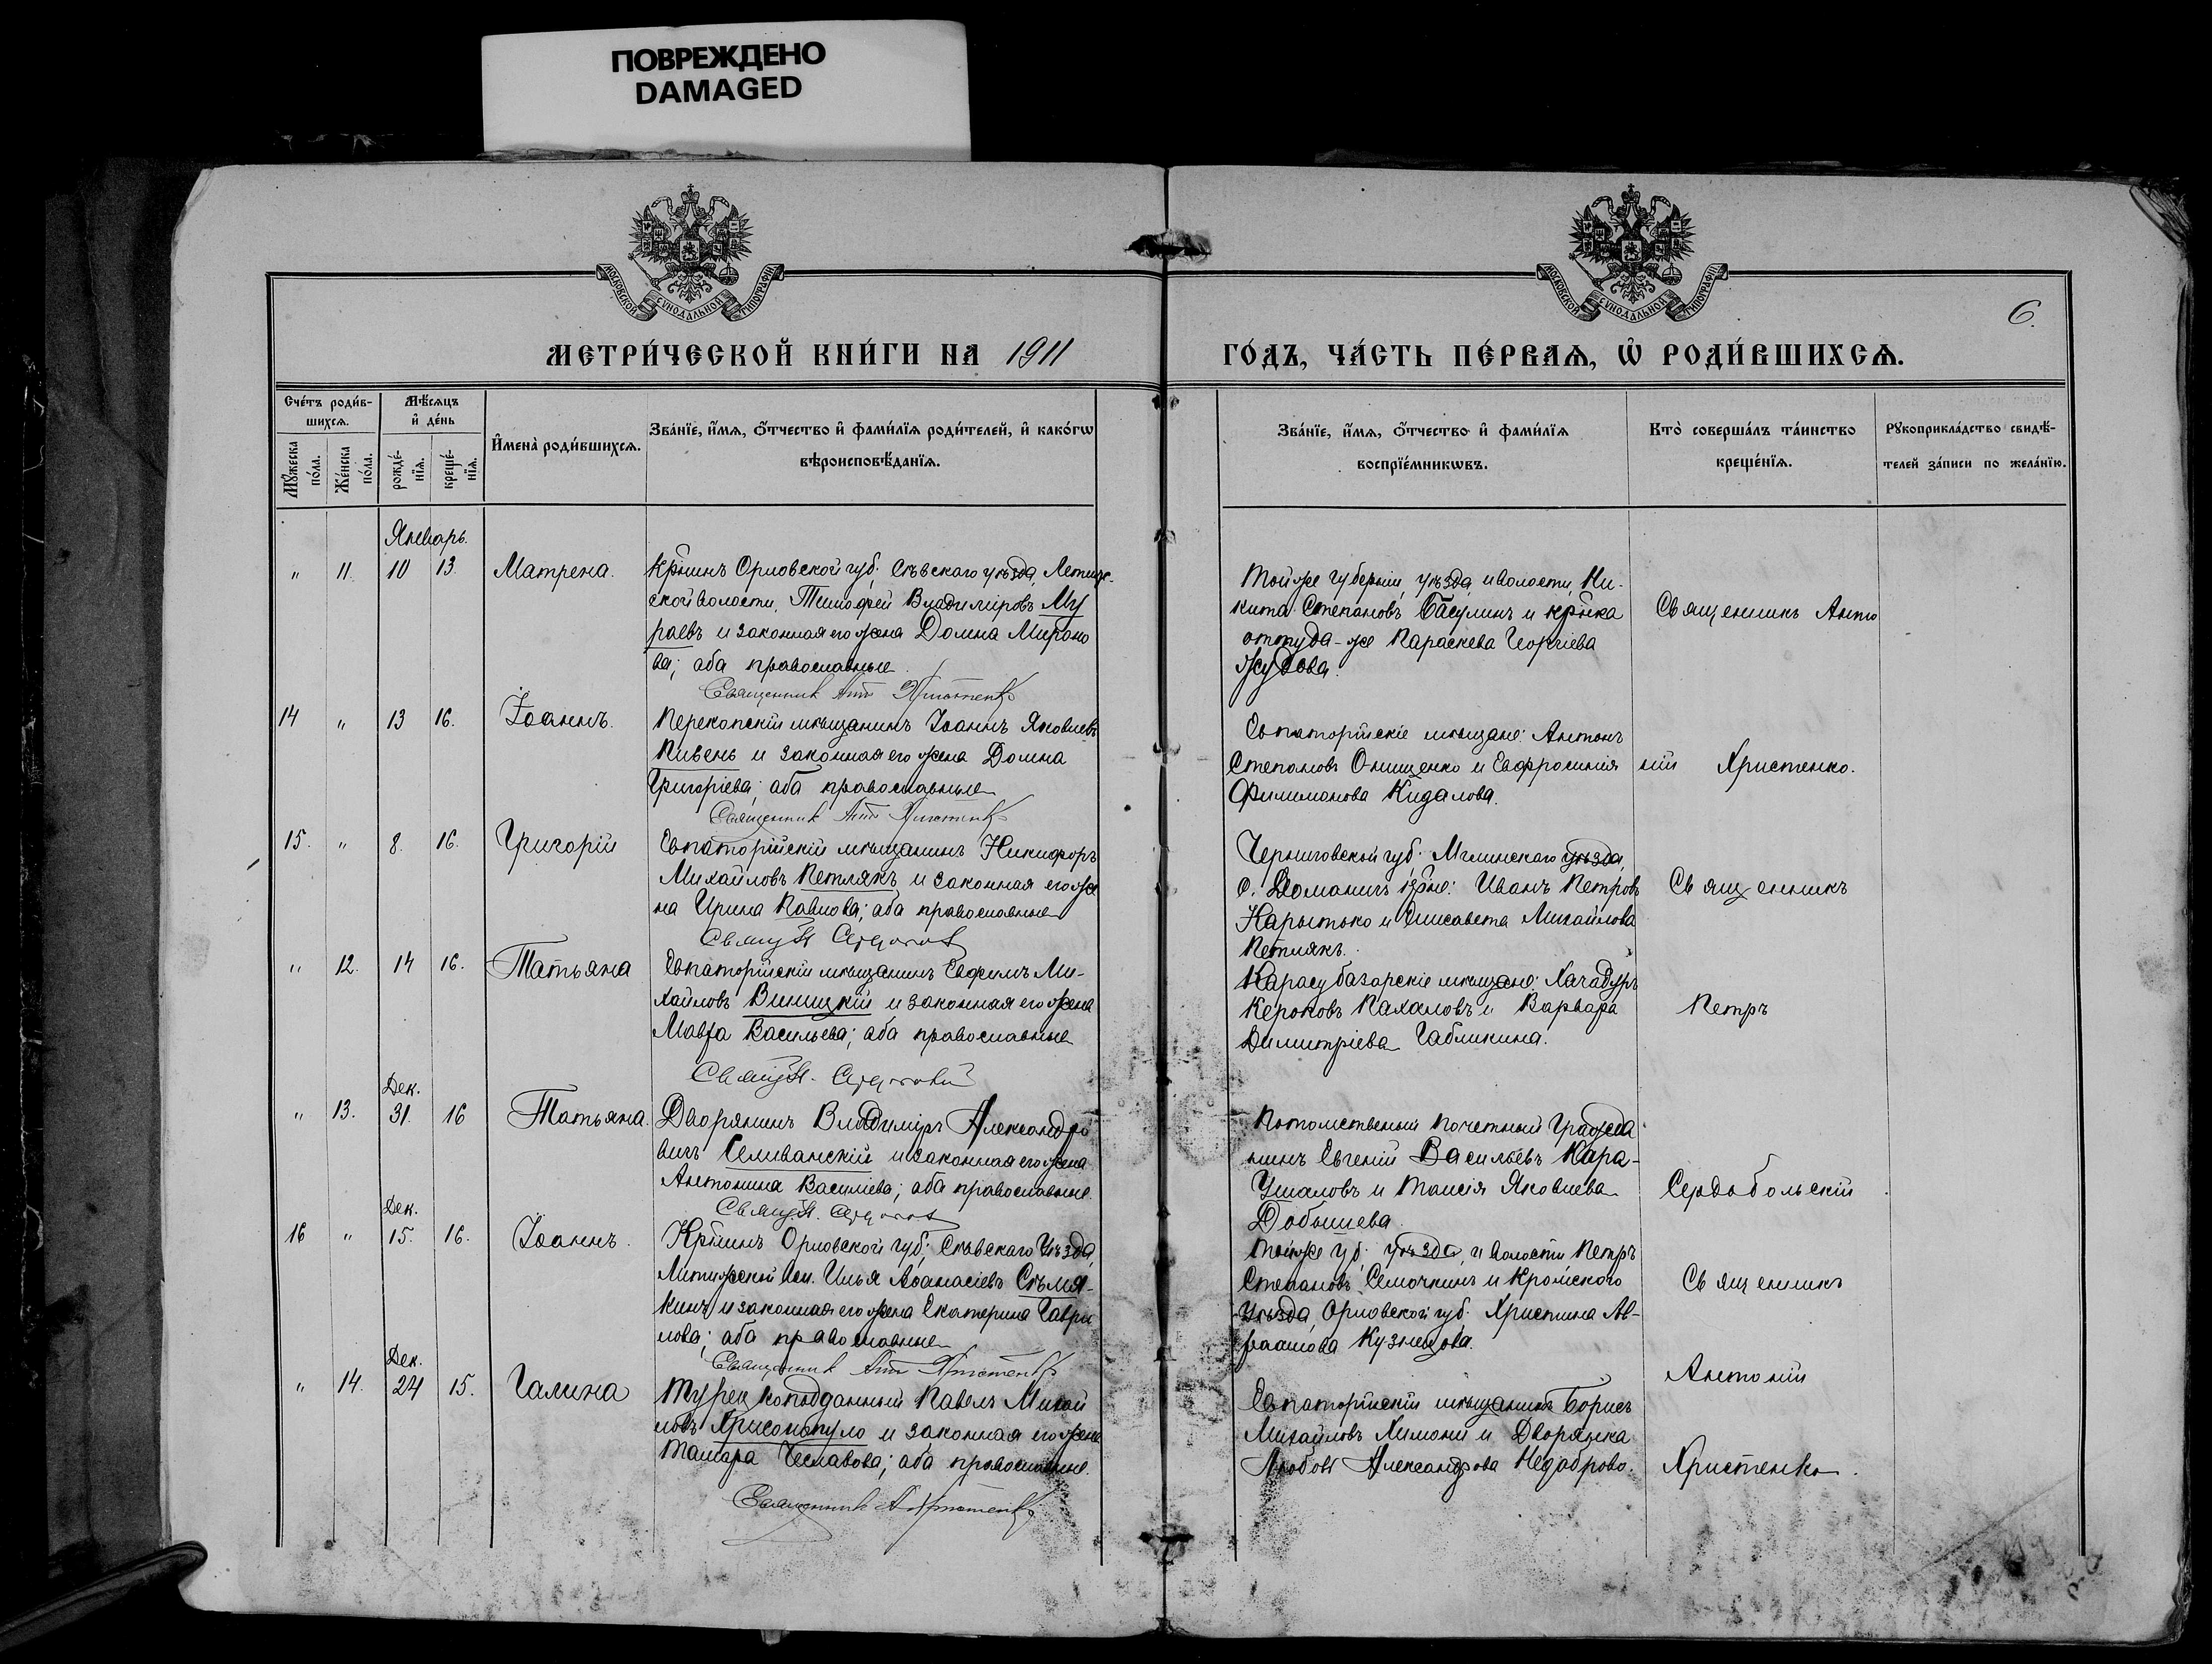 ПОВРЕЖДЕНО
DAMAGED
МОСКОВСКОЙ СУНОДАЛЬНОЙ ТИПОГРАФІИ
МОСКОВСКОЙ СУНОДАЛЬНОЙ ТИПОГРАФІИ
6.
МЕТРИ́ЧЕСКОЙ КНИ́ГИ НА 1911
ГО́ДЪ, ЧА́СТЬ ПЕ́РВАѦ, Ѡ҆ РОДИ́ВШИХСѦ.
Сче́тъ роди́в-
шихсѧ.
Мꙋ́жеска по́ла.
Же́нска по́ла.
Мѣ́сѧцъ
и҆ де́нь
рожде́-нїѧ.
креще́-нїѧ.
И҆мена̀ роди́вшихсѧ.
Зва́нїе, и҆́мѧ, ѻ҆́тчество и҆ фами́лїѧ роди́телей, и҆ како́гѡ
вѣроисповѣ́данїѧ.
Зва́нїе, и҆́мѧ, ѻ҆́тчество и҆ фами́лїѧ
воспрїе́мникѡвъ.
Кто̀ соверша́лъ та́инство
креще́нїѧ.
Рꙋкоприкла́дство свидѣ́-
телей за́писи по жела́нїю.
Январь.
" 11. 10 13. Матрена.
Кр҃нинъ Орловской губ. Сѣвскаго уѣзда,
ской волости, Тимофей Владиміровъ Му
раевъ и законная его жена Домна Мироно
ва; оба православные
Священник Ант Христенко
Той же губерніи, уѣзда и волости, Ни-
кита Степановъ и кр҃нка
оттуда-же Параскева Георгіева
Священникъ Анто
14 " 13 16. Іоаннъ.
Перекопскій мѣщанинъ Іоаннъ Яковлевъ
Пивень и законная его жена Домна
Григоріева; оба православные
Священник Ант Христенко
Евпаторійскіе мѣщане: Антонъ
Степановъ Онищенко и Евфросинія
Филимонова Кидалова.
ній Христенко.
15. " 8. 16. Григорій
Евпаторійскій мѣщанинъ Никифоръ
Михайловъ Петлякъ и законная его же
на Ирина Павлова; оба православные
Черниговской губ. Мглинскаго уѣзда,
с. Доманичъ Иванъ Петровъ
и Елисавета Михайлова
Петлякъ.
Священникъ
" 12. 14 16. Татьяна
Евпаторійскій мѣщанинъ Евфимъ Ми-
хайловъ Виницкій и законная его жена
Мавра Васильева; оба православные
Карасубазарскіе мѣщане: Хачадуръ
Пахаловъ и Варвара
Димитріева Габликина.
Петръ
Дек.
" 13. 31. 16 Татьяна.
Дворянинъ Владиміръ Александро
вичъ Селиванскій и законная его жена
Антонина Василіева; оба православные.
Потомственный Почетный Гражда
нинъ Евгеній Васильевъ Кара-
Ушаловъ и Таисія Яковлева
Добышева.
Сердобольскій
Дек.
16 " 15. 16. Іоаннъ.
Кр҃нинъ Орловской губ. Сѣвскаго Уѣзда,
вол. Илья Аѳанасіевъ Сѣмя-
кинъ и законная его жена Екатерина Гаври
лова; оба православные
Священник Ант Христенко
Той же губ. уѣзда, и волости Петръ
Степановъ Семочкинъ и Кромского
Уѣзда, Орловской губ. Христина Ав-
раамова Кузнецова.
Священникъ
Дек.
" 14. 24 15. Галина
Турецкоподданный Павелъ Михай
ловъ Хрисопуло и законная его жена
Тамара Чеславова; оба православные.
Священник А Христенко
Евпаторійскій мѣщанинъ Борисъ
Михайловъ Химони и Дворянка
Любовь Александрова Недоброво.
Антоній
Христенко.